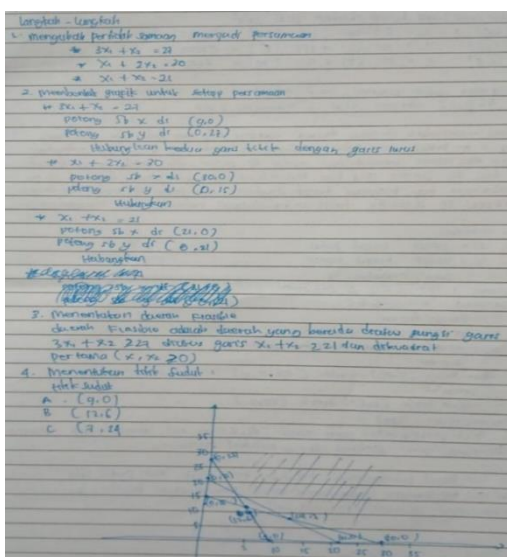 Langkah - Langkah
1. mengubah pertidaksamaan menjadi persamaan
* 3x₁ + x₂ = 27
* x₁ + 2x₂ = 30
* x₁ + x₂ = 21
2. membuat grafik untuk setiap persamaan
* 3x₁ + x₂ = 27
potong sb x di (9,0)
potong sb y di (0,27)
Hubungkan kedua garis titik dengan garis lurus
* x₁ + 2x₂ = 30
potong sb x di (30,0)
potong sb y di (0,15)
Hubungkan
* x₁ + x₂ = 21
potong sb x di (21,0)
potong sb y di (0,21)
Hubungkan
3. Menentukan daerah Fiasible
daerah Fiasible adalah daerah yang berada diatas garis
3x₁ + x₂ ≥ 27 diatas garis x₁ + x₂ ≥ 21 dan dikuadrat
pertama (x, x₂ ≥ 0)
4. Menentukan titik sudut
titik sudut
A (9,0)
B (12,6)
C
35
30
25
20
15
10
5
5 10 15 20 30 35
(30,0)